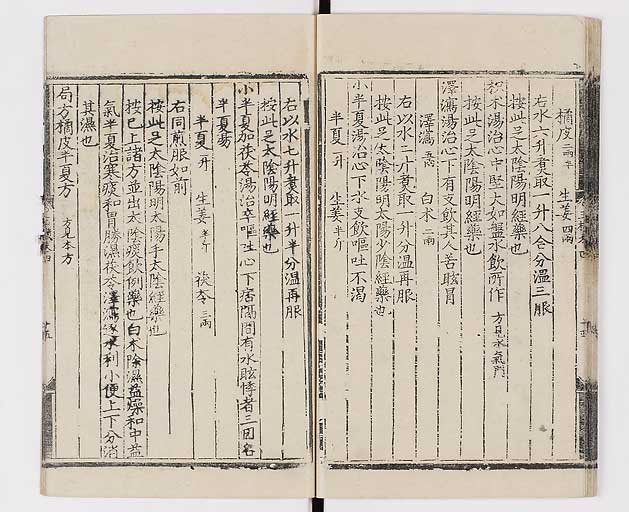 橘皮 二兩半 生姜 四兩
右水六升煑取一升八合分温三服
按此足太陰陽明經藥也
枳术湯治心中堅大如盤水飲所作 方見水氣門
按此足太陰陽明經藥也
澤瀉湯治心下有支飲其人苦眩冒
澤瀉 五兩 白术 二兩
右以水二升煑取一升分温再服
按此足太陰陽明太陽少陰經藥也
小半夏湯治心下水支飲嘔吐不渴
半夏 一升 生姜 半斤
右以水七升煑取一升半分温再服
按此足太陰陽明經藥也
小半夏加茯苓湯治卒嘔吐心下痞隔間有水眩悸者三因名
半夏湯
半夏 一升 生姜 半斤 茯苓 三兩
右同煎服如前
按此足太陰陽明太陽手太陰經藥也
按已上諸方並出太陰痰飲例藥也白术除濕益燥和中益
氣半夏治寒痰和胃勝濕茯苓澤瀉逐水利小便上下分消
其濕也
局方橘皮半夏方 方見本方